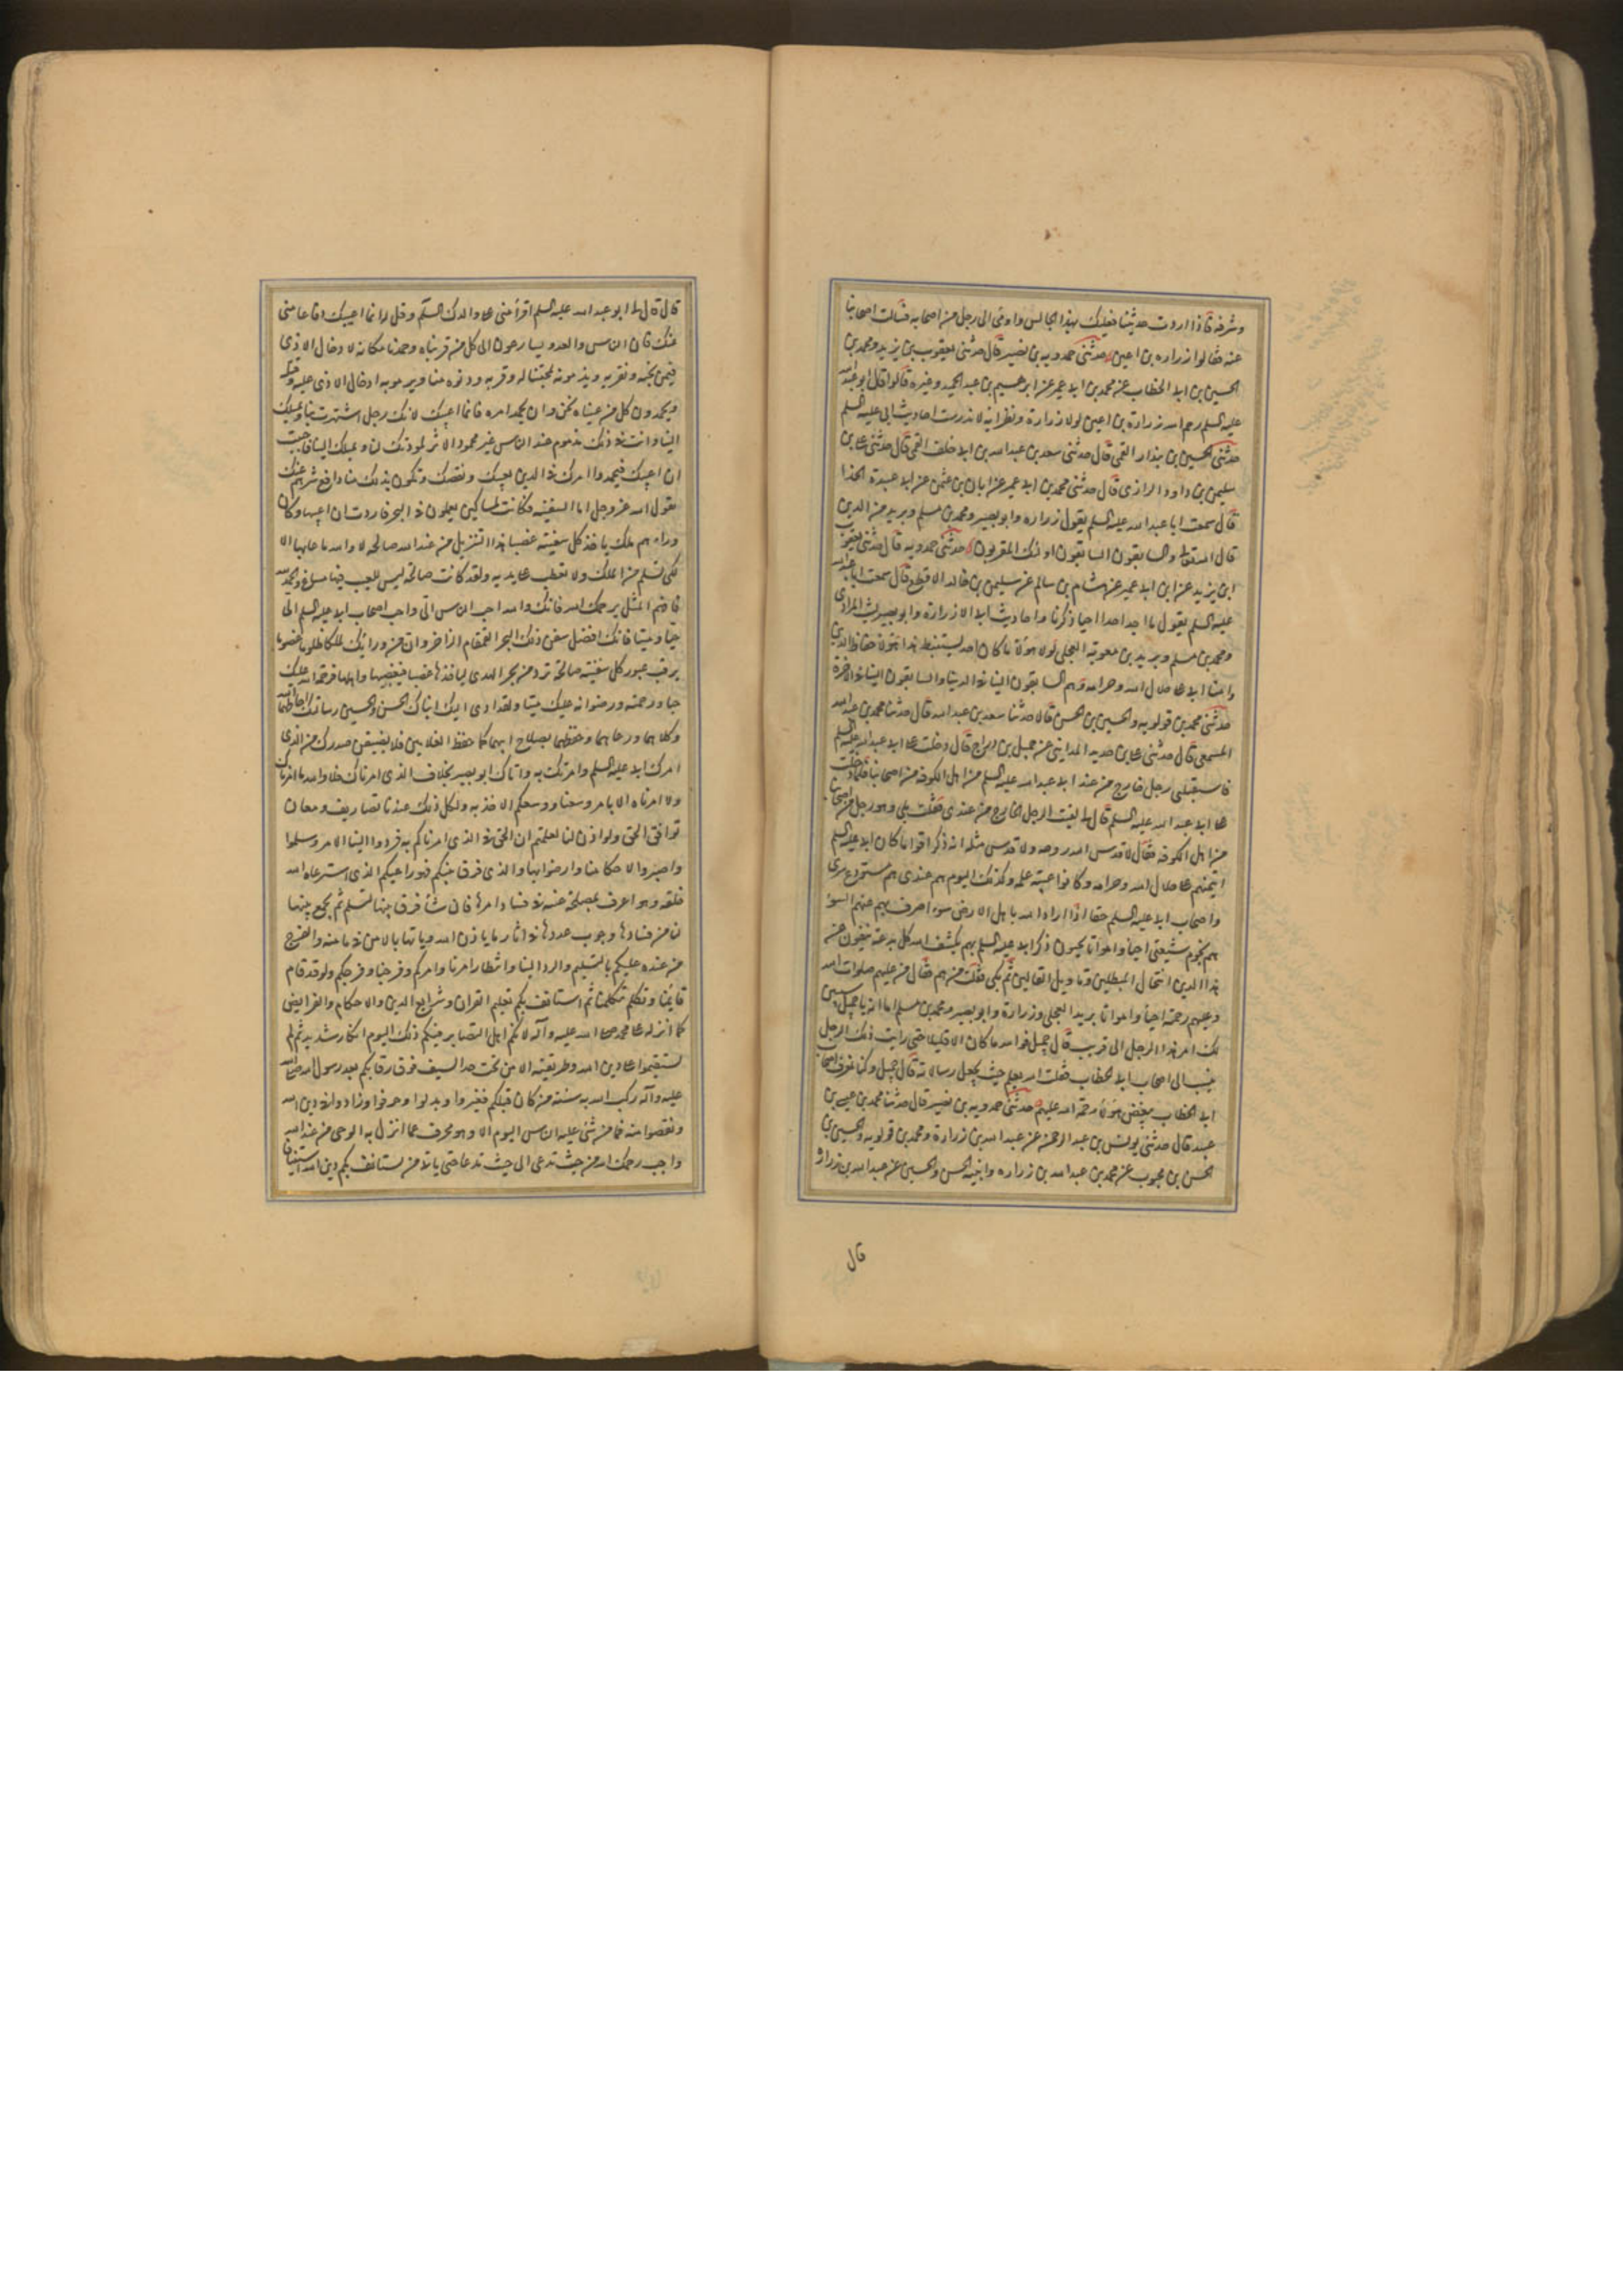 وشرفه فاذا اردت حديثنا فعليك بهذا الجالس واومى الى رجل من اصحابه فسالت اصحابنا
عنه فقالوا زرارة بن اعين حدثنى حمدويه بن نصير قال حدثنى يعقوب بن يزيد ومحمد بن
الحسين بن ابى الخطاب عن محمد بن ابى عمير عن ابرهيم بن عبد الحميد وغيره قالوا قال ابو عبد الله
عليه السلم رحم الله زرارة بن اعين لولا زرارة ونظرايه لاندرست احاديث ابى عليه السلم
حدثنى الحسين بن بندار القمى قال حدثنى سعد بن عبد الله بن ابى خلف القمى قال حدثنى على بن
سليمن بن داود الرازى قال حدثنى محمد بن ابى عمير عن ابان بن عثمن عن ابى عبيدة الحذا
قال سمعت ابا عبد الله عليه السلم يقول زراره وابو بصير ومحمد بن مسلم وبريد من الذين
قال الله تعالى والسابقون السابقون اولئك المقربون حدثنى حمدويه قال حدثنى يعقوب
ابن يزيد عن ابن ابى عمير عن هشام بن سالم عن سليمن بن خالد الاقطع قال سمعت ابا عبد الله
عليه السلم يقول ما اجد احدا احيا ذكرنا واحاديث ابى الا زرارة وابو بصير ليث المرادى
ومحمد بن مسلم وبريد بن معوية العجلى لولا هؤلاء ما كان احد يستنبط هذا هؤلاء حفاظ الدين
وامنا ابى على حلال الله وحرامه وهم السابقون الينا فى الدنيا والسابقون الينا فى الاخرة
حدثنى محمد بن قولويه والحسين بن الحسن قالا حدثنا سعد بن عبد الله قال حدثنا محمد بن عبد الله
المسمعى قال حدثنى على بن حديد المداينى عن جميل بن دراج قال دخلت على ابى عبد الله عليه السلم
فاستقبلنى رجل خارج من عند ابى عبد الله عليه السلم من اهل الكوفة من اصحابنا فلما دخلت
على ابى عبد الله عليه السلم قال لى لقيت الرجل الخارج من عندى فقلت بلى وهو رجل من اصحابنا
من اهل الكوفة فقال لا قدس الله روحه ولا قدس مثله انه ذكر اقواما كان ابى عليه السلم
ايتمنهم على حلال الله وحرامه وكانوا عيبة علمه وكذلك اليوم هم عندى هم مستودع سرى
واصحاب ابى عليه السلم حقا اذا اراد الله باهل الارض سوء اصرف بهم عنهم السوء
هم نجوم شيعتى احياء وامواتا يحيون ذكر ابى عليه السلم بهم يكشف الله كل بدعة ينفون عن
هذا الدين انتحال المبطلين وتاويل الغالين ثم بكى فقلت من هم فقال من عليهم صلوات الله
وعليهم رحمته احياء وامواتا بريد العجلى وزرارة وابو بصير ومحمد بن مسلم اما انه يا جميل سيبين
لك امر هذا الرجل الى قريب قال جميل فوالله ما كان الا قليلا حتى رايت ذلك الرجل
ينسب الى اصحاب ابى الخطاب فقلت الله يعلم حيث يجعل رسالاته قال جميل وكنا نعرف اصحاب
ابى الخطاب ببغض هؤلاء رحمة الله عليهم حدثنى حمدويه بن نصير قال حدثنا محمد بن عيسى بن
عبيد قال حدثنى يونس بن عبد الرحمن عن عبد الله بن زرارة ومحمد بن قولويه والحسين بن
الحسن بن محبوب عن محمد بن عبد الله بن زراره وابنيه الحسن والحسين عن عبد الله بن زرارة
قال
قال قال لى ابو عبد الله عليه السلم اقرأ منى على والدك السلم وقل له انما اعيبك دفاعا منى
عنك فان الناس والعدو يسارعون الى كل من قربناه وحمدنا مكانه لادخال الاذى
فيمن نحبه ونقربه ويذمونه لمحبتنا له وقربه ودنوه منا ويرمونه ادخال الاذى عليه وقتله
ويحمدون كل من عيبناه نحن وان يحمد امره فانما اعيبك لانك رجل اشتهرت بنا وبميلك
الينا وانت فى ذلك مذموم عند الناس غير محمود الاثر لمودتك لنا وبميلك الينا فاحببت
ان اعيبك فيحمدوا امرك فى الدين بعيبك ونقصك وتكون بذلك منا دافع شرهم عنك
يقول الله عز وجل اما السفينه فكانت لمساكين يعملون فى البحر فاردت ان اعيبها وكان
وراءهم ملك ياخذ كل سفينة غصبا هذا التنزيل من عند الله صالحه لا والله ما عابها الا
لكى تسلم من الملك ولا تعطب على يديه ولقد كانت صالحة ليس للعيب فيها مساغ والحمد لله
فافهم المثل يرحمك الله فانك والله احب الناس الى واحب اصحاب ابى عليه السلم الى
حيا وميتا فانك افضل سفن ذلك البحر القمقام الزاخر وان من ورائك ملكا ظلوما غصوبا
يرقب عبور كل سفينة صالحة ترد من بحر الهدى لياخذها غصبا فيغصبها واهلها فرحمة الله عليك
حيا ورحمته ورضوانه عليك ميتا ولقد ادى الى ابناك الحسن والحسين رسالتك احاطهما الله
وكلاهما ورعاهما وحفظهما بصلاح ابيهما كما حفظ الغلامين فلا يضيقن صدرك من الذى
امرك ابى عليه السلم وامرتك به واتاك ابو بصير بخلاف الذى امرناك فلا والله ما امرناك
ولا امرناه الا بامر وسعنا ووسعكم الاخذ به ولكل ذلك عندنا تصاريف ومعان
توافق الحق ولو اذن لنا لعلمتم ان الحق فى الذى امرناكم به فردوا الينا الامر وسلموا
واصبروا لاحكامنا وارضوا بها والذى فرق بينكم فهو راعيكم الذى استرعاه الله
خلقه وهو اعرف بمصلحة غنمه فى فساد امرها فان شاء فرق بينها لتسلم ثم يجمع بينها
لتامن من فسادها وخوف عدوها فى اثار ما ياذن الله وياتيها بالامن من مامنه والفرج
من عنده عليكم بالتسليم والرد الينا وانتظار امرنا وامركم وفرجنا وفرجكم ولو قد قام
قايمنا وتكلم متكلمنا ثم استانف بكم تعليم القران وشرايع الدين والاحكام والفرايض
كما انزله على محمد صلى الله عليه وآله لانكر اهل البصاير فيكم ذلك اليوم انكار شديد ثم لم
تستقيموا على دين الله وطريقته الا من تحت حد السيف فوق رقابكم بعد رسول الله صلى الله
عليه وآله ركب الله به سنة من كان قبلكم فغيروا وبدلوا وحرفوا وزادوا فى دين الله
ونقصوا منه فما من شئ عليه الناس اليوم الا وهو محرف عما انزل به الوحى من عند الله
واجب رحمك الله من حيث تدعى الى حيث تدعا حتى ياتى من يستانف بكم دين الله استينافا